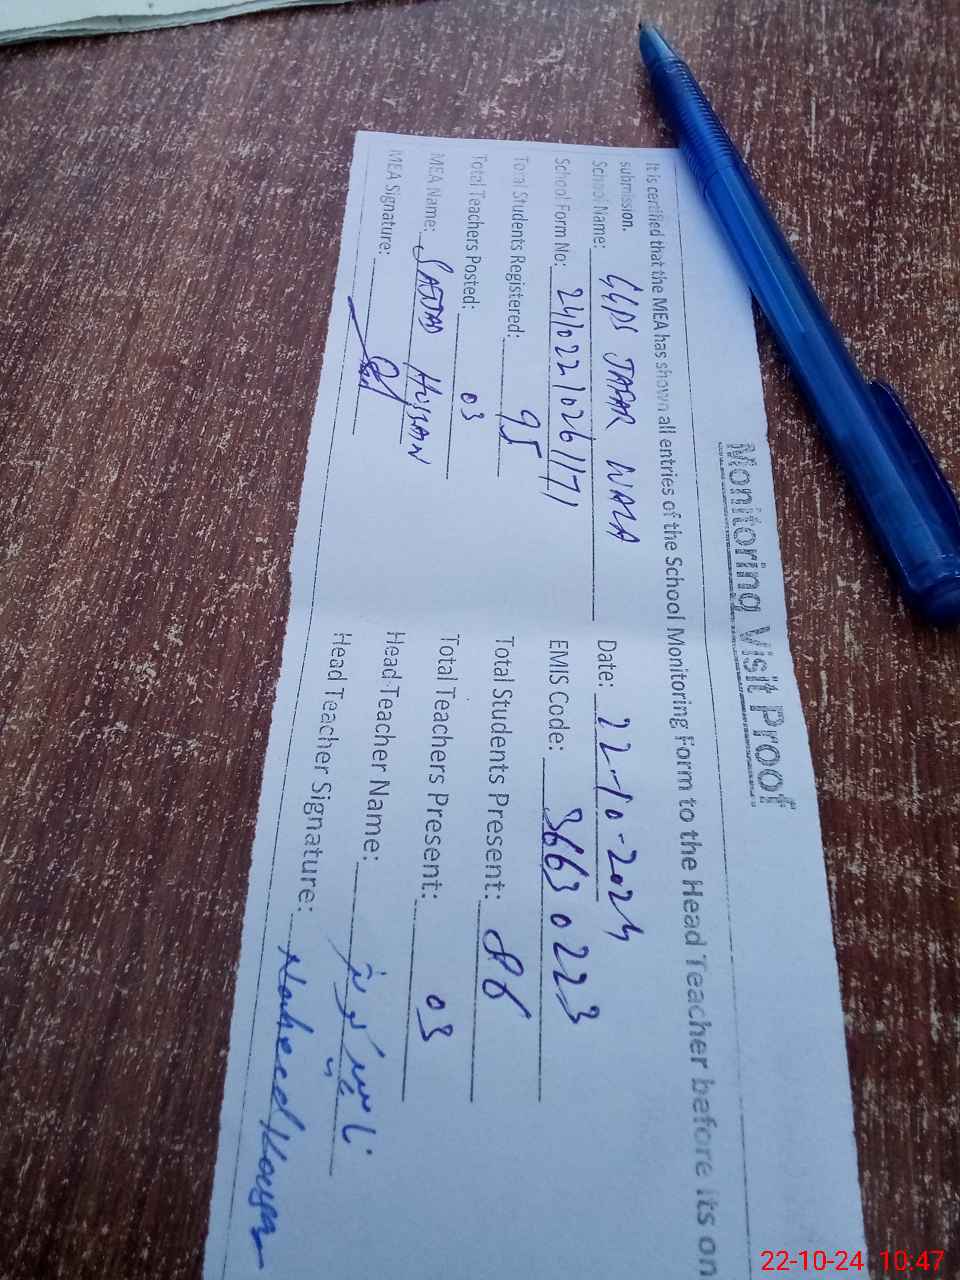 Monitoring Visit Proof
It is certified that the MEA has shown all entries of the School Monitoring Form to the Head Teacher before its on
submission.
School Name: GGPS JAFAR WALA Date: 22-10-2024
School Form No: 241022102611171 EMIS Code: 3663 0223
Total Students Registered: 95 Total Students Present: 86
Total Teachers Posted: 03 Total Teachers Present: 03
MEA Name: SAJJAD HUSSAN Head Teacher Name:
MEA Signature: Head Teacher Signature: Naheed Kousar
22-10-24 10:47